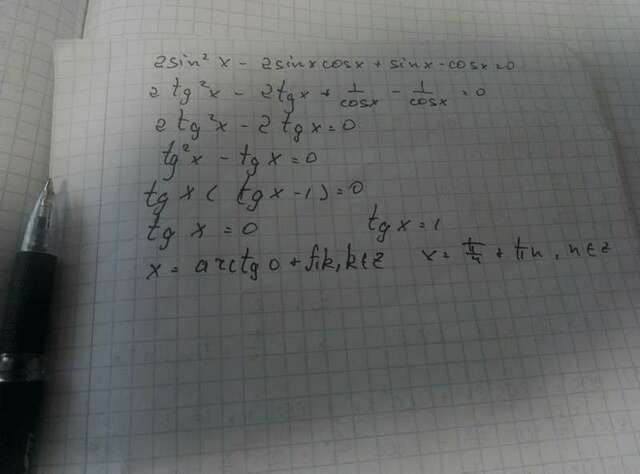 2sin² x - 2sinxcosx + sinx - cosx = 0
2 tg²x - 2tgx + 1/cosx - 1/cosx = 0
2 tg²x - 2 tgx = 0
tg²x - tg x = 0
tg x ( tgx - 1 ) = 0
tg x = 0 tg x = 1
x = arctg 0 + πk, k∈z x = π/4 + πn, n∈z